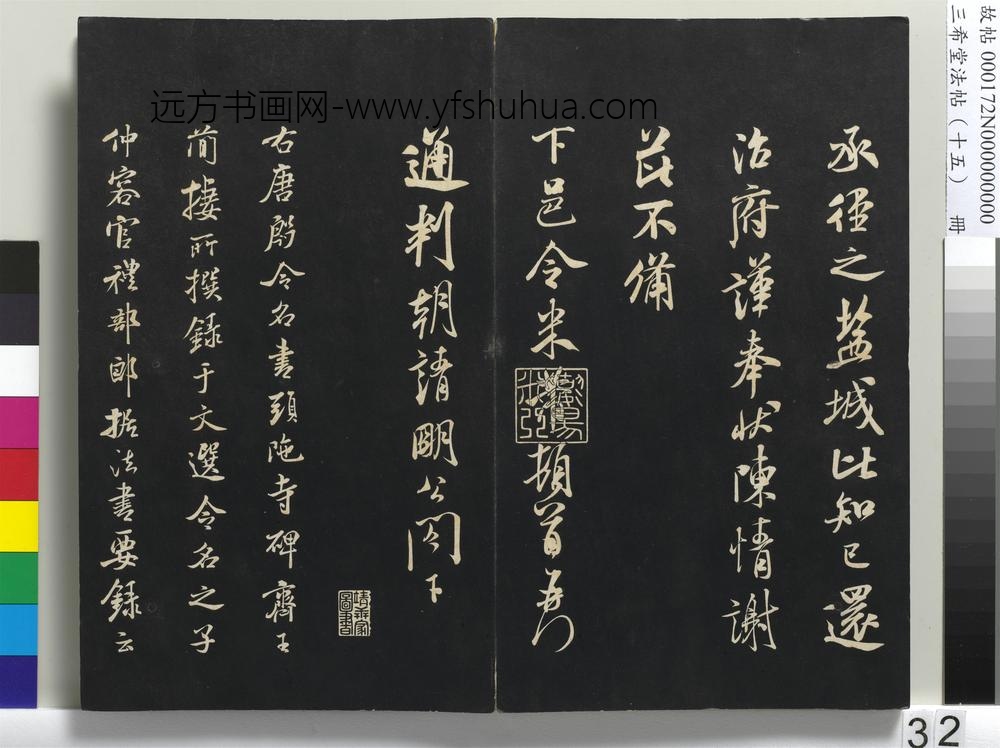 承徑之盐城比知已還
治府謹奉状陳情謝
兹不備
下邑令米頓首再行
通判朝請明公閤下
右唐殷令名書頭陁寺碑齊王
簡捿所撰録于文選令名之子
仲容官禮部郎据法書要録云
远方书画网-www.yfshuhua.com
故帖 000172N000000000
三希堂法帖（十五） 冊
32